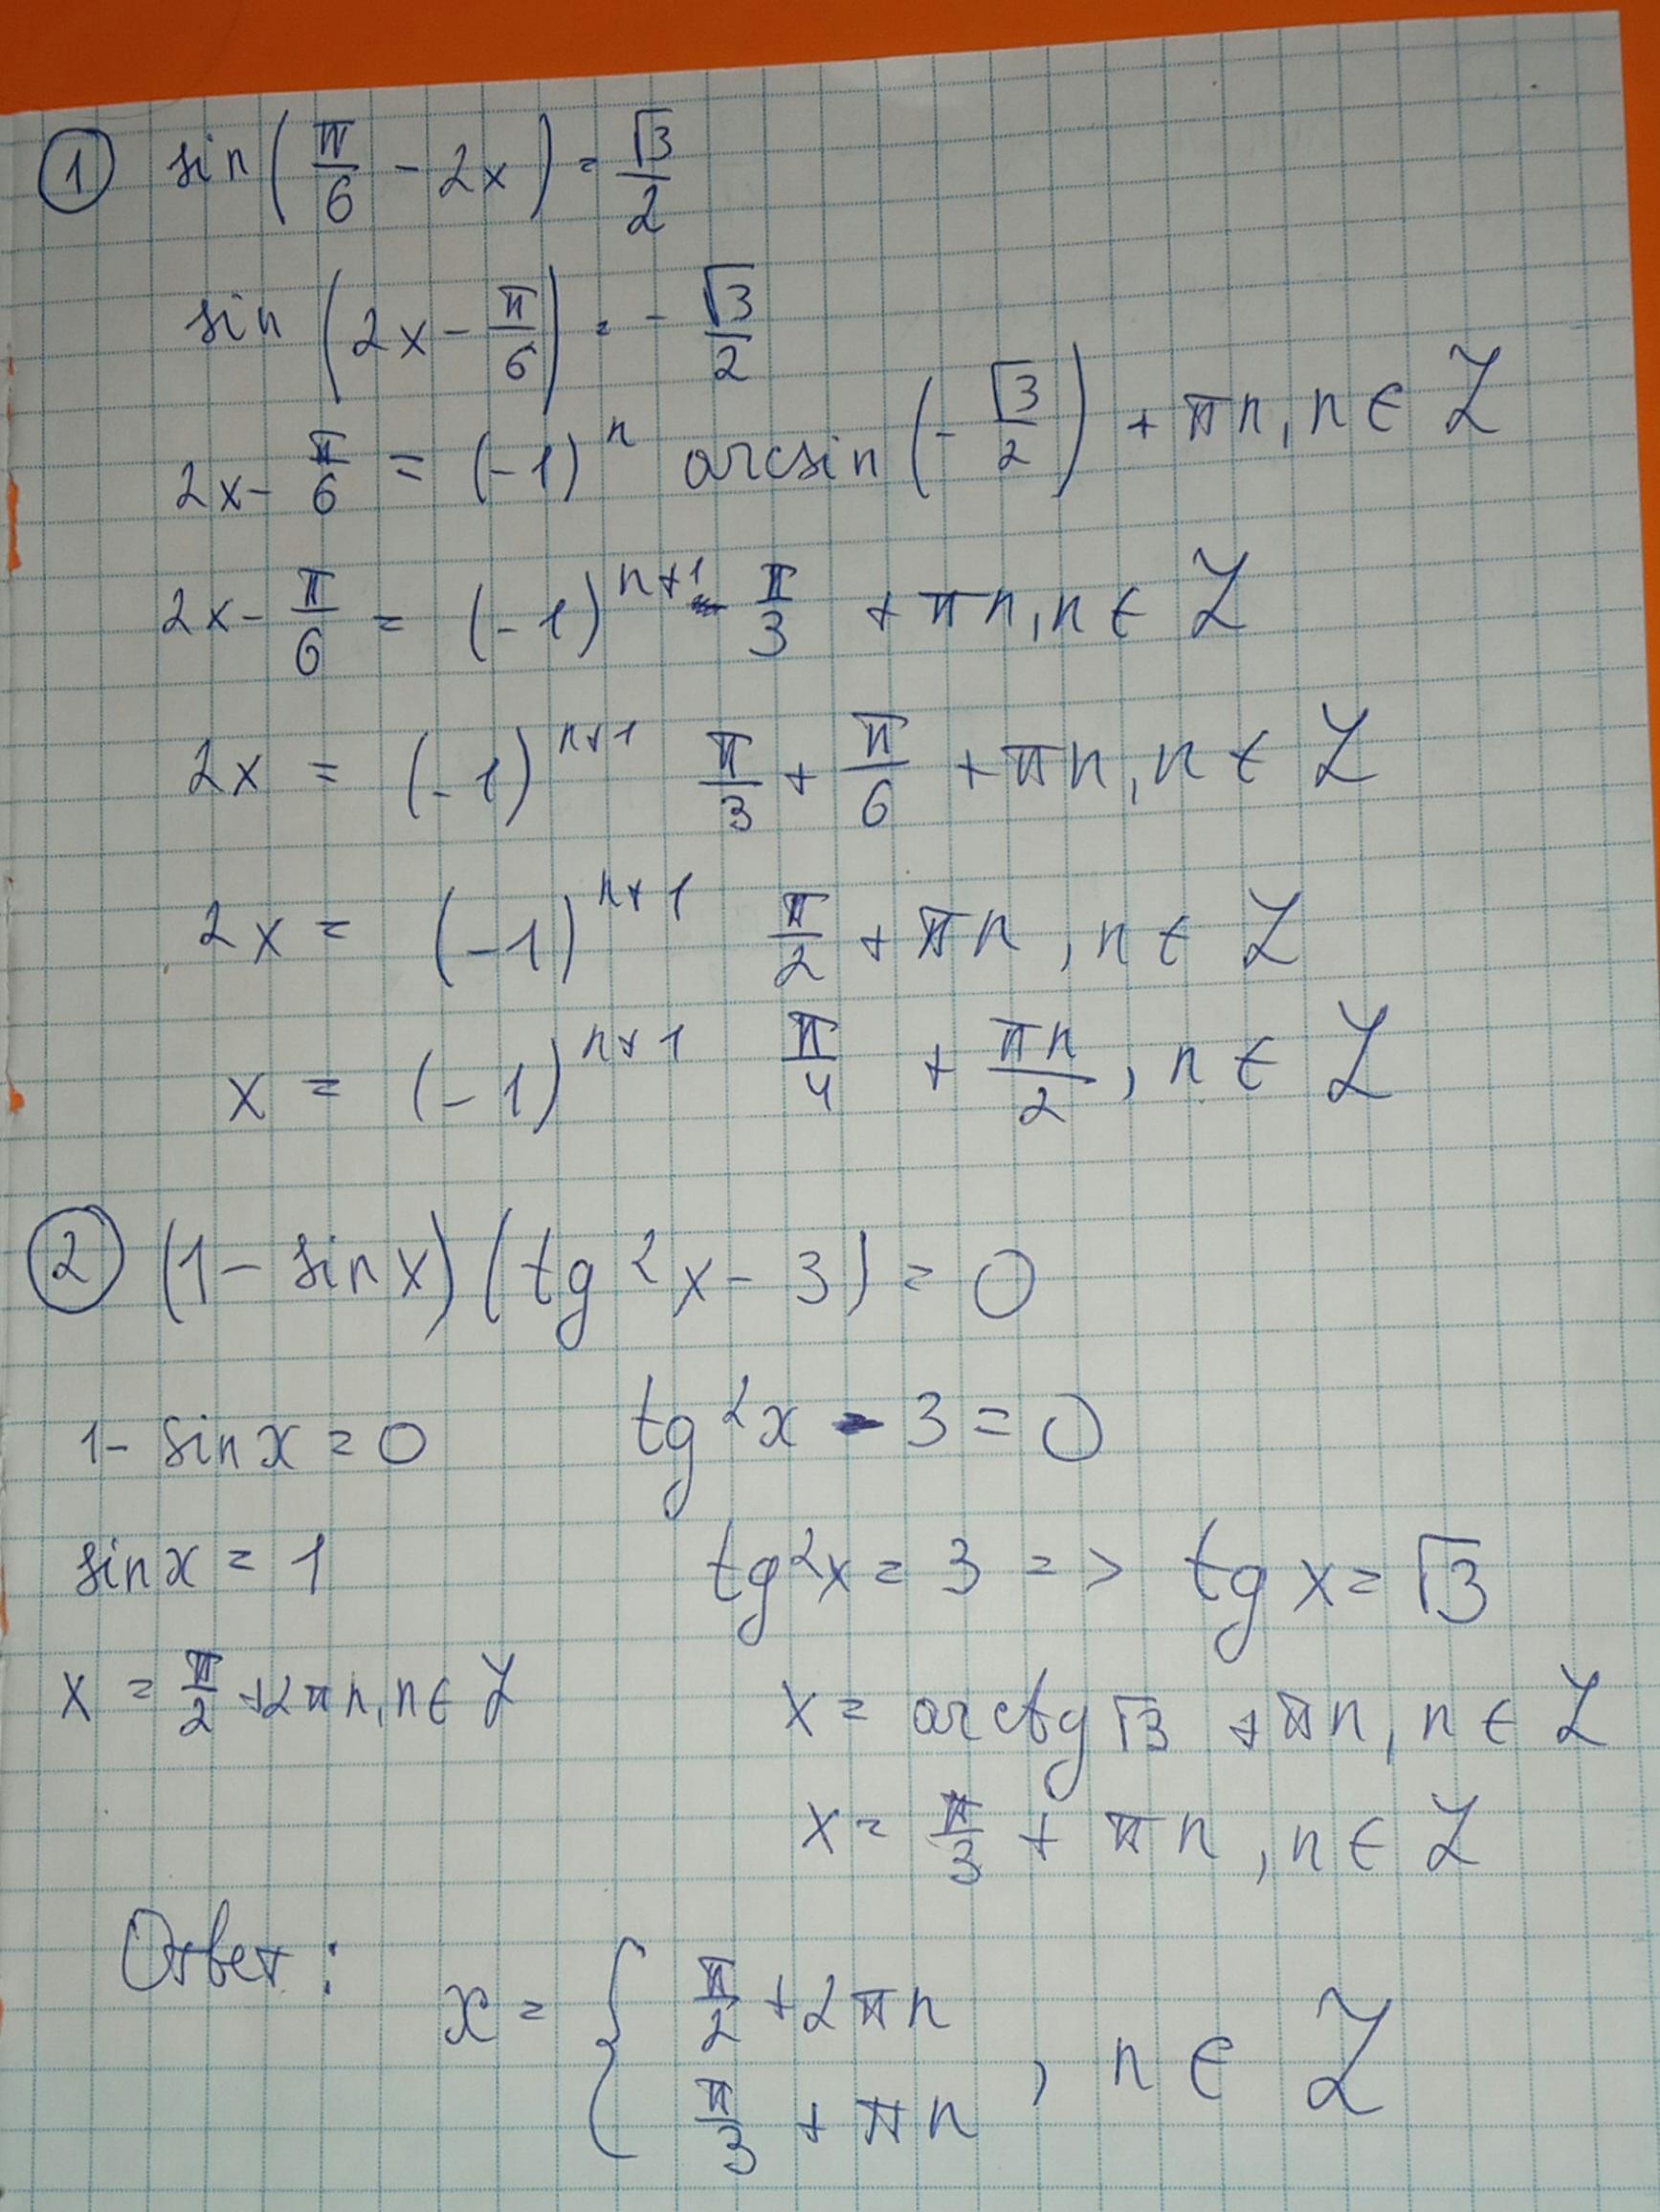 ① sin(π/6 - 2x) = √3/2
sin(2x - π/6) = - √3/2
2x - π/6 = (-1)^n arcsin(- √3/2) + πn, n ∈ Z
2x - π/6 = (-1)^(n+1) π/3 + πn, n ∈ Z
2x = (-1)^(n+1) π/3 + π/6 + πn, n ∈ Z
2x = (-1)^(n+1) π/2 + πn, n ∈ Z
x = (-1)^(n+1) π/4 + πn/2, n ∈ Z
② (1 - sin x)(tg²x - 3) = 0
1 - sin x = 0 tg²x - 3 = 0
sin x = 1 tg²x = 3 => tg x = √3
x = π/2 + 2πn, n ∈ Z x = arctg √3 + πn, n ∈ Z
x = π/3 + πn, n ∈ Z
Ответ: x = { π/2 + 2πn
π/3 + πn , n ∈ Z